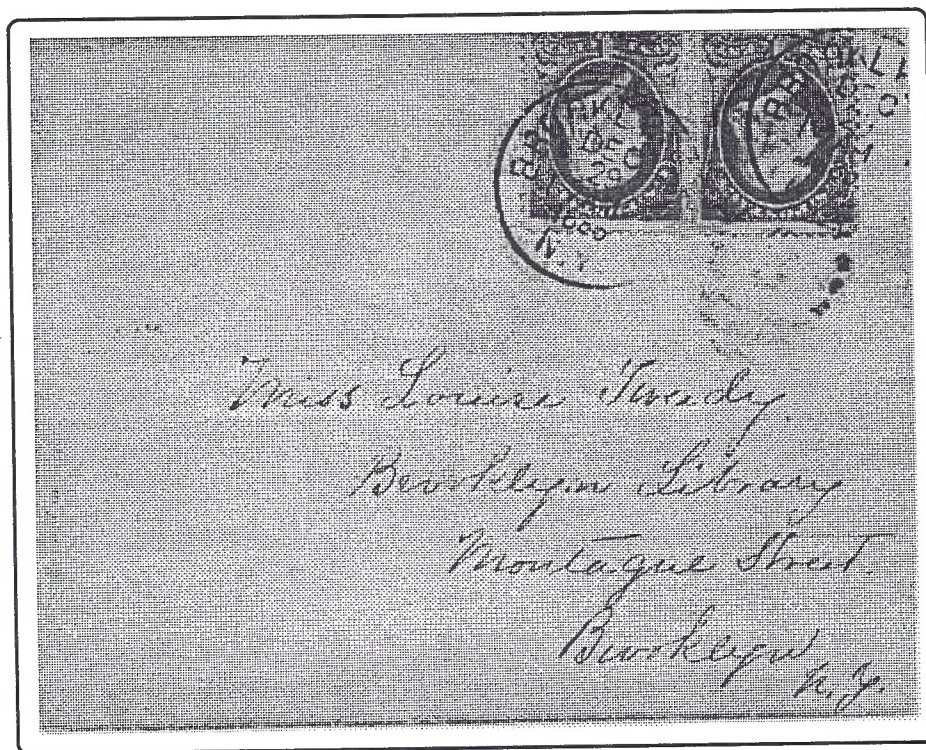 BROOKLYN
DEC
29
N.Y.
Miss Louise Tweedy
Brooklyn Library
Montague Street
Brooklyn
N.Y.